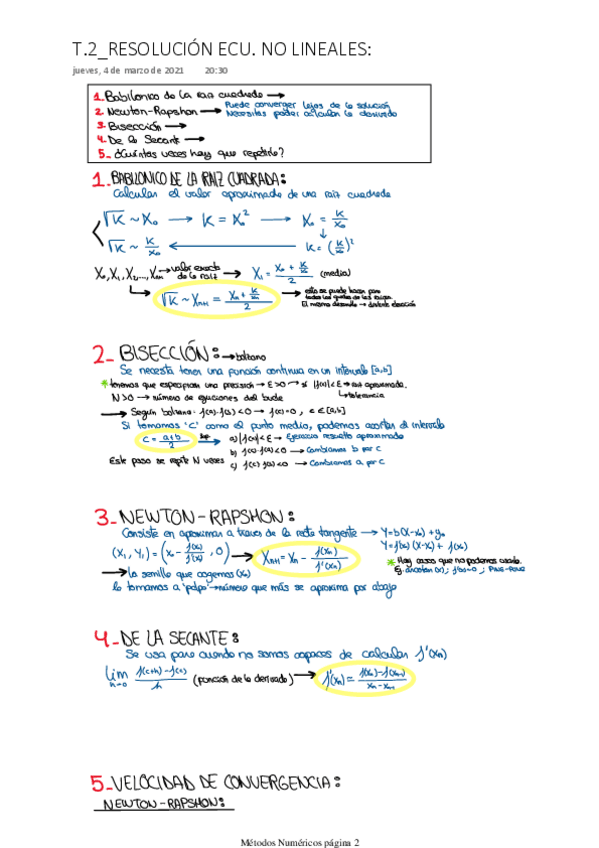 T.2_RESOLUCIÓN ECU. NO LINEALES:
jueves, 4 de marzo de 2021 20:30
1. Babilonico de la raiz cuadrada →
2. Newton-Rapshon → Puede converger lejos de la solución
Necesitas poder calcular la derivada
3. Bisección →
4. De la Secante →
5. ¿Cuántas veces hay que repetirlo?
1. BABILONICO DE LA RAIZ CUADRADA:
Calcular el valor aproximado de una raiz cuadrada
√K ~ X₀ → K = X₀² → X₀ = K/X₀
√K ~ K/X₀ ← K = (K/X₀)²
X₀, X₁, X₂, ..., → valor exacto de la raiz → X₁ = (X₀ + K/X₀)/2 (media)
√K ~ Xₙ₊₁ = (Xₙ + K/Xₙ)/2 → esto se puede hacer para
El mismo desarrollo → distinta elección
2_ BISECCIÓN: → bolzano
Se necesita tener una función continua en un intervalo [a,b]
* tenemos que especificar una precisión → ε>0 → si |f(x)|<ε → sol aproximada.
N>0 → número de ejecuciones del bucle ↳ tolerancia
→ Según bolzano: f(a)·f(b)<0 → f(c)=0, c ∈ [a,b]
Si tomamos 'c' como el punto medio, podemos acortar el intervalo
c = (a+b)/2 → a) |f(c)|<ε → Ejercicio resuelto aproximado
b) f(c)·f(a)<0 → Cambiamos b por c
Este paso se repite N veces c) f(c)·f(a)<0 → Cambiamos a por c
3_ NEWTON-RAPSHON:
Consiste en aproximar a traves de la recta tangente → Y=b(X-x₀)+y₀
Y=f'(x₀)(X-x₀)+f(x₀)
(X₁, Y₁) = (X₀ - f(x₀)/f'(x₀), 0) → Xₙ₊₁ = Xₙ - f(Xₙ)/f'(Xₙ)
* Hay casos que no podemos usarlo.
→ La semilla que cogemos (x₀)
lo tomamos a 'palpo' → número que más se aproxima por abajo
4_ DE LA SECANTE:
Se usa para cuando no somos capaces de calcular f'(xₙ)
lim h→0 (f(c+h)-f(c))/h (función de la derivada) → f'(xₙ) = (f(xₙ)-f(xₙ₋₁))/(xₙ-xₙ₋₁)
5_ VELOCIDAD DE CONVERGENCIA:
NEWTON-RAPSHON:
Métodos Numéricos página 2